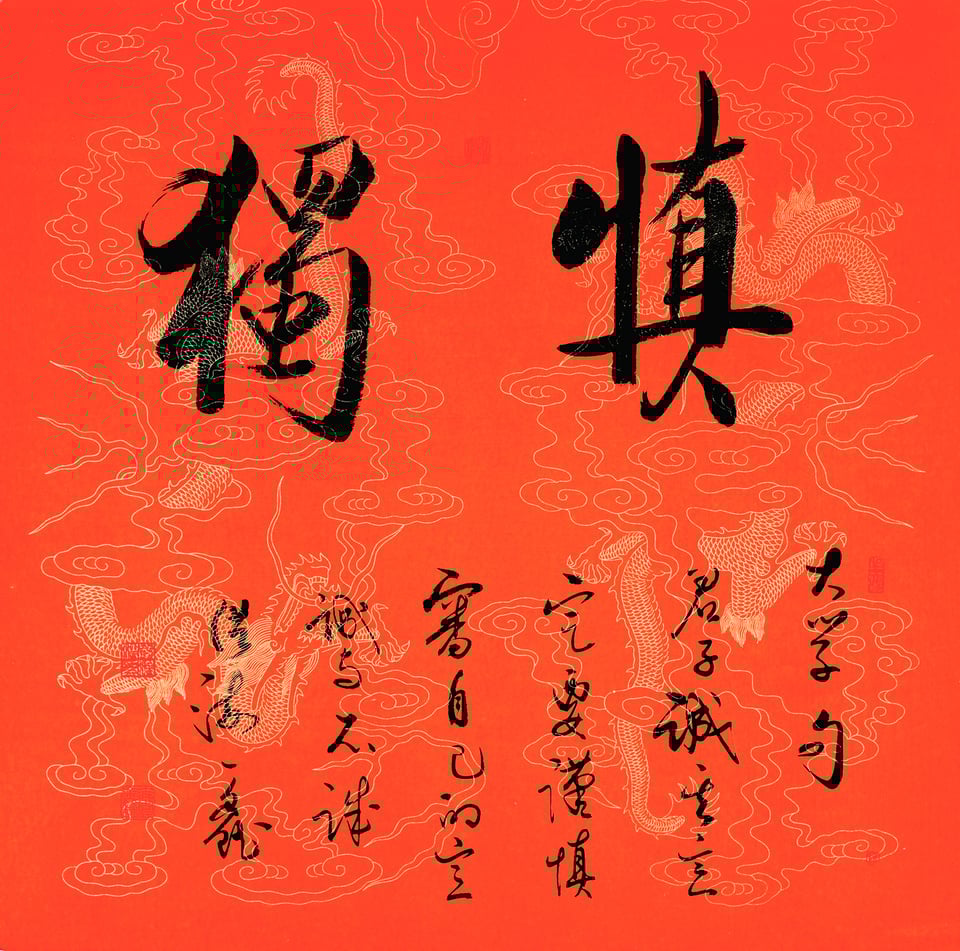 慎獨
大学句
君子誠其意
定要謹慎
審自己的意
誠与不誠